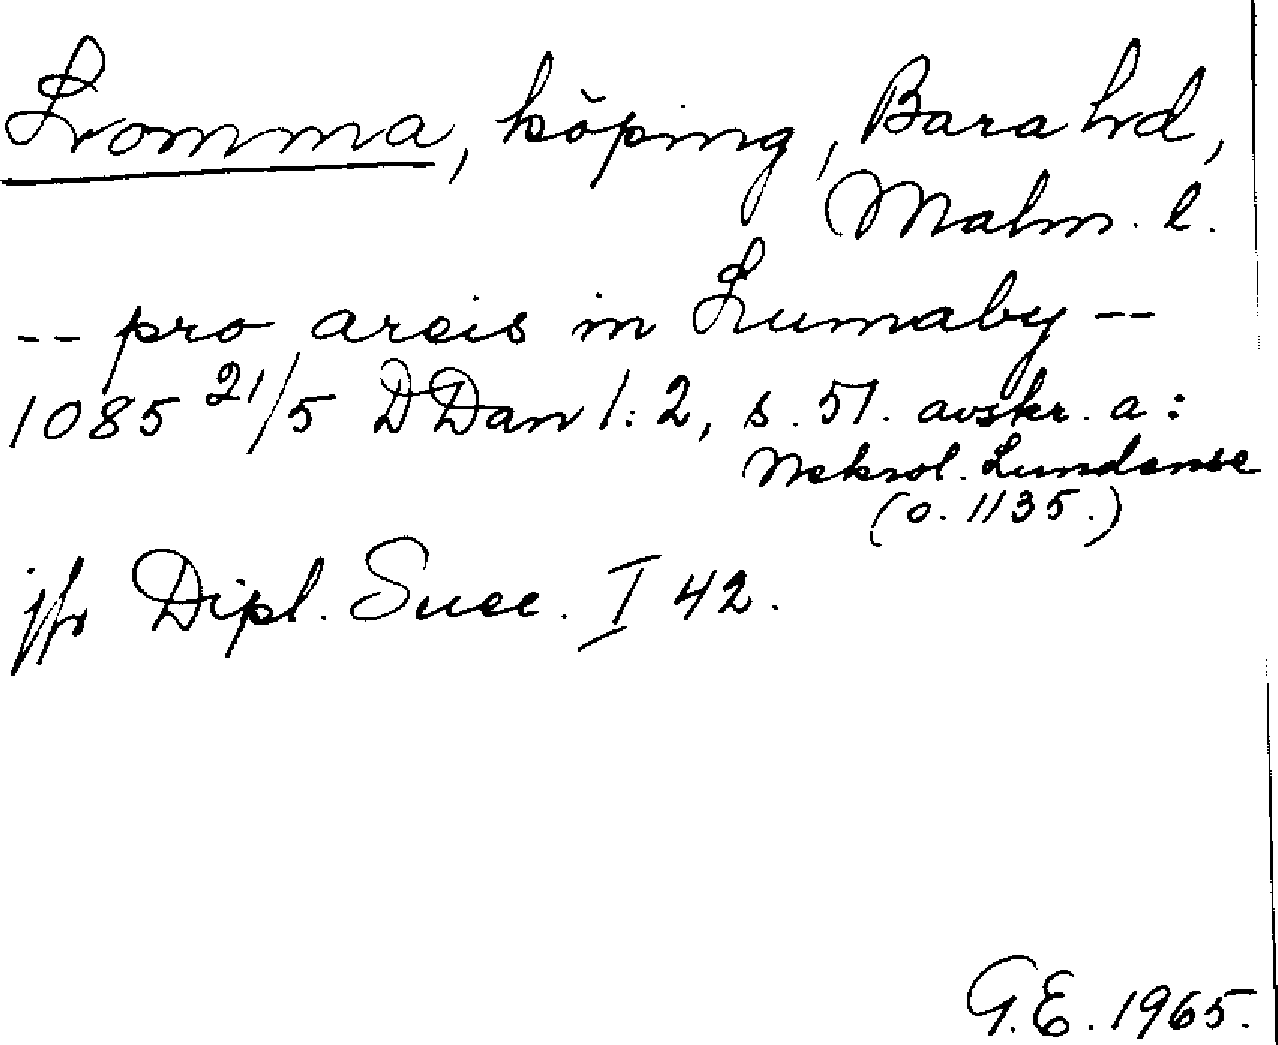 Lomma, köping, Bara hd,
Malm. l.
-- pro areis in Lumaby --
1085 21/5 DDan 1:2, s. 51. avskr. a:
Nekrol. Lundense
(o. 1135.)
jfr Dipl. Suec. I 42.
G.E. 1965.